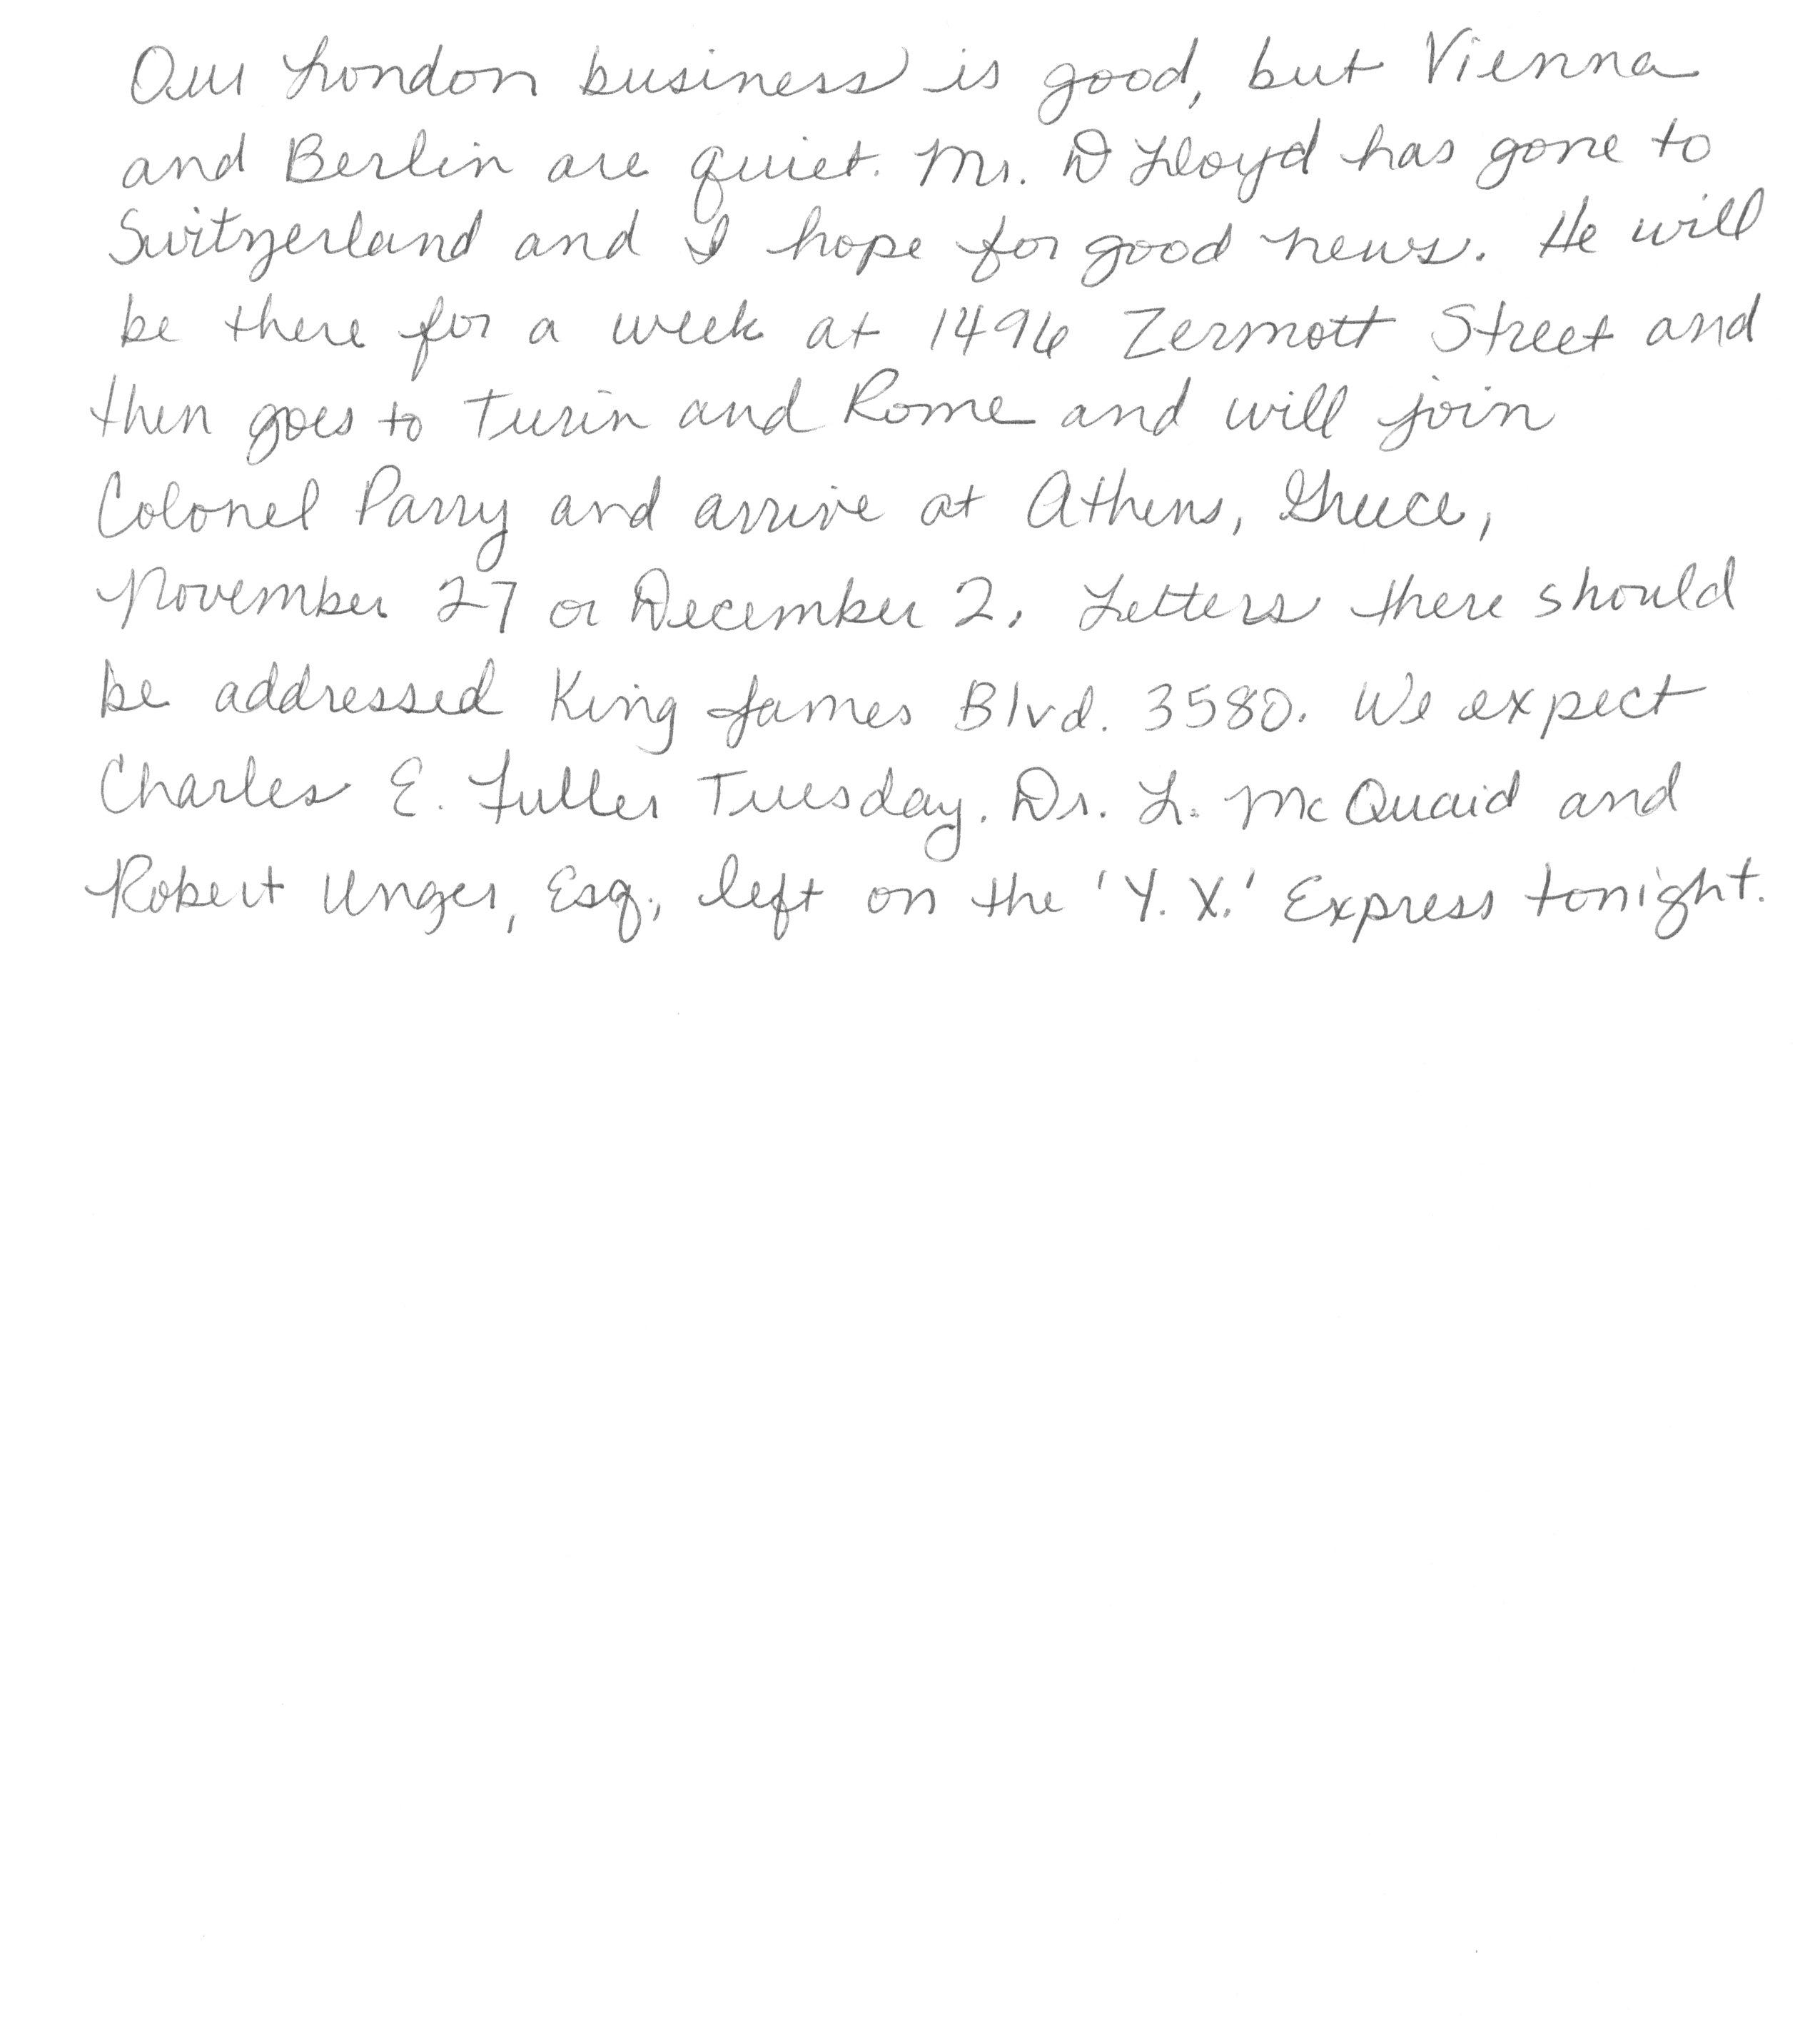 Our London business is good, but Vienna
and Berlin are quiet. Mr. D Lloyd has gone to
Switzerland and I hope for good news. He will
be there for a week at 1496 Zermott Street and
then goes to Turin and Rome and will join
Colonel Parry and arrive at Athens, Greece,
November 27 or December 2. Letters there should
be addressed King James Blvd. 3580. We expect
Charles E. Fuller Tuesday. Dr. L. McQuaid and
Robert Unger, Esq., left on the 'Y.X.' Express tonight.